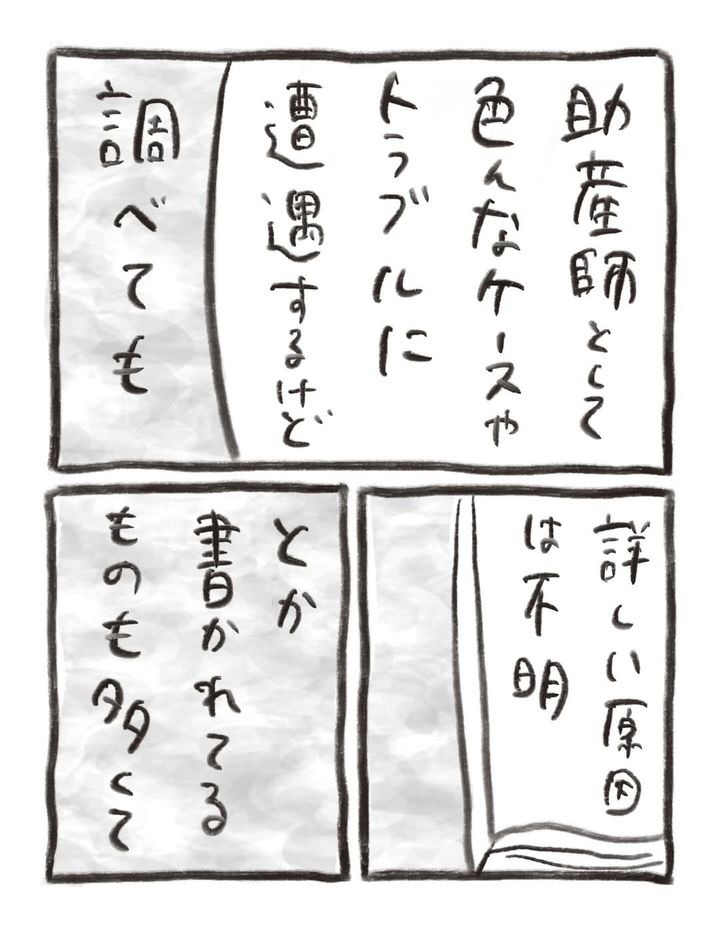 助産師として
色んなケースや
トラブルに
遭遇するけど
調べても
詳しい原因
は不明
とか
書かれてる
ものも多くて